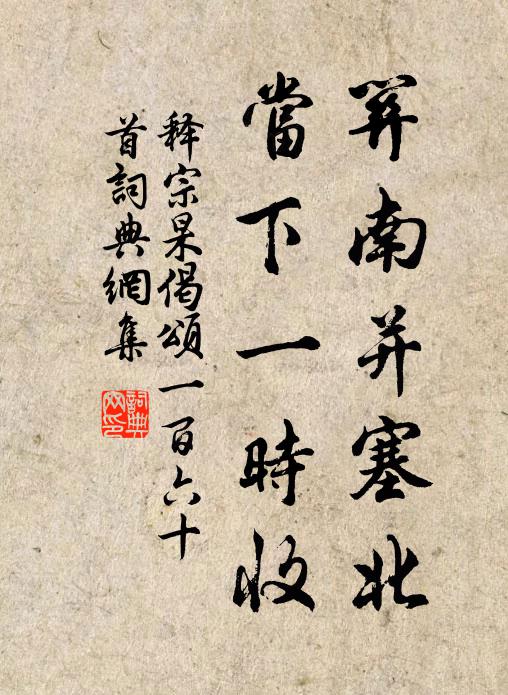 筭南并塞北
當下一時收
释宗杲偈頌一百六十
首詞典網集
詞典
网印